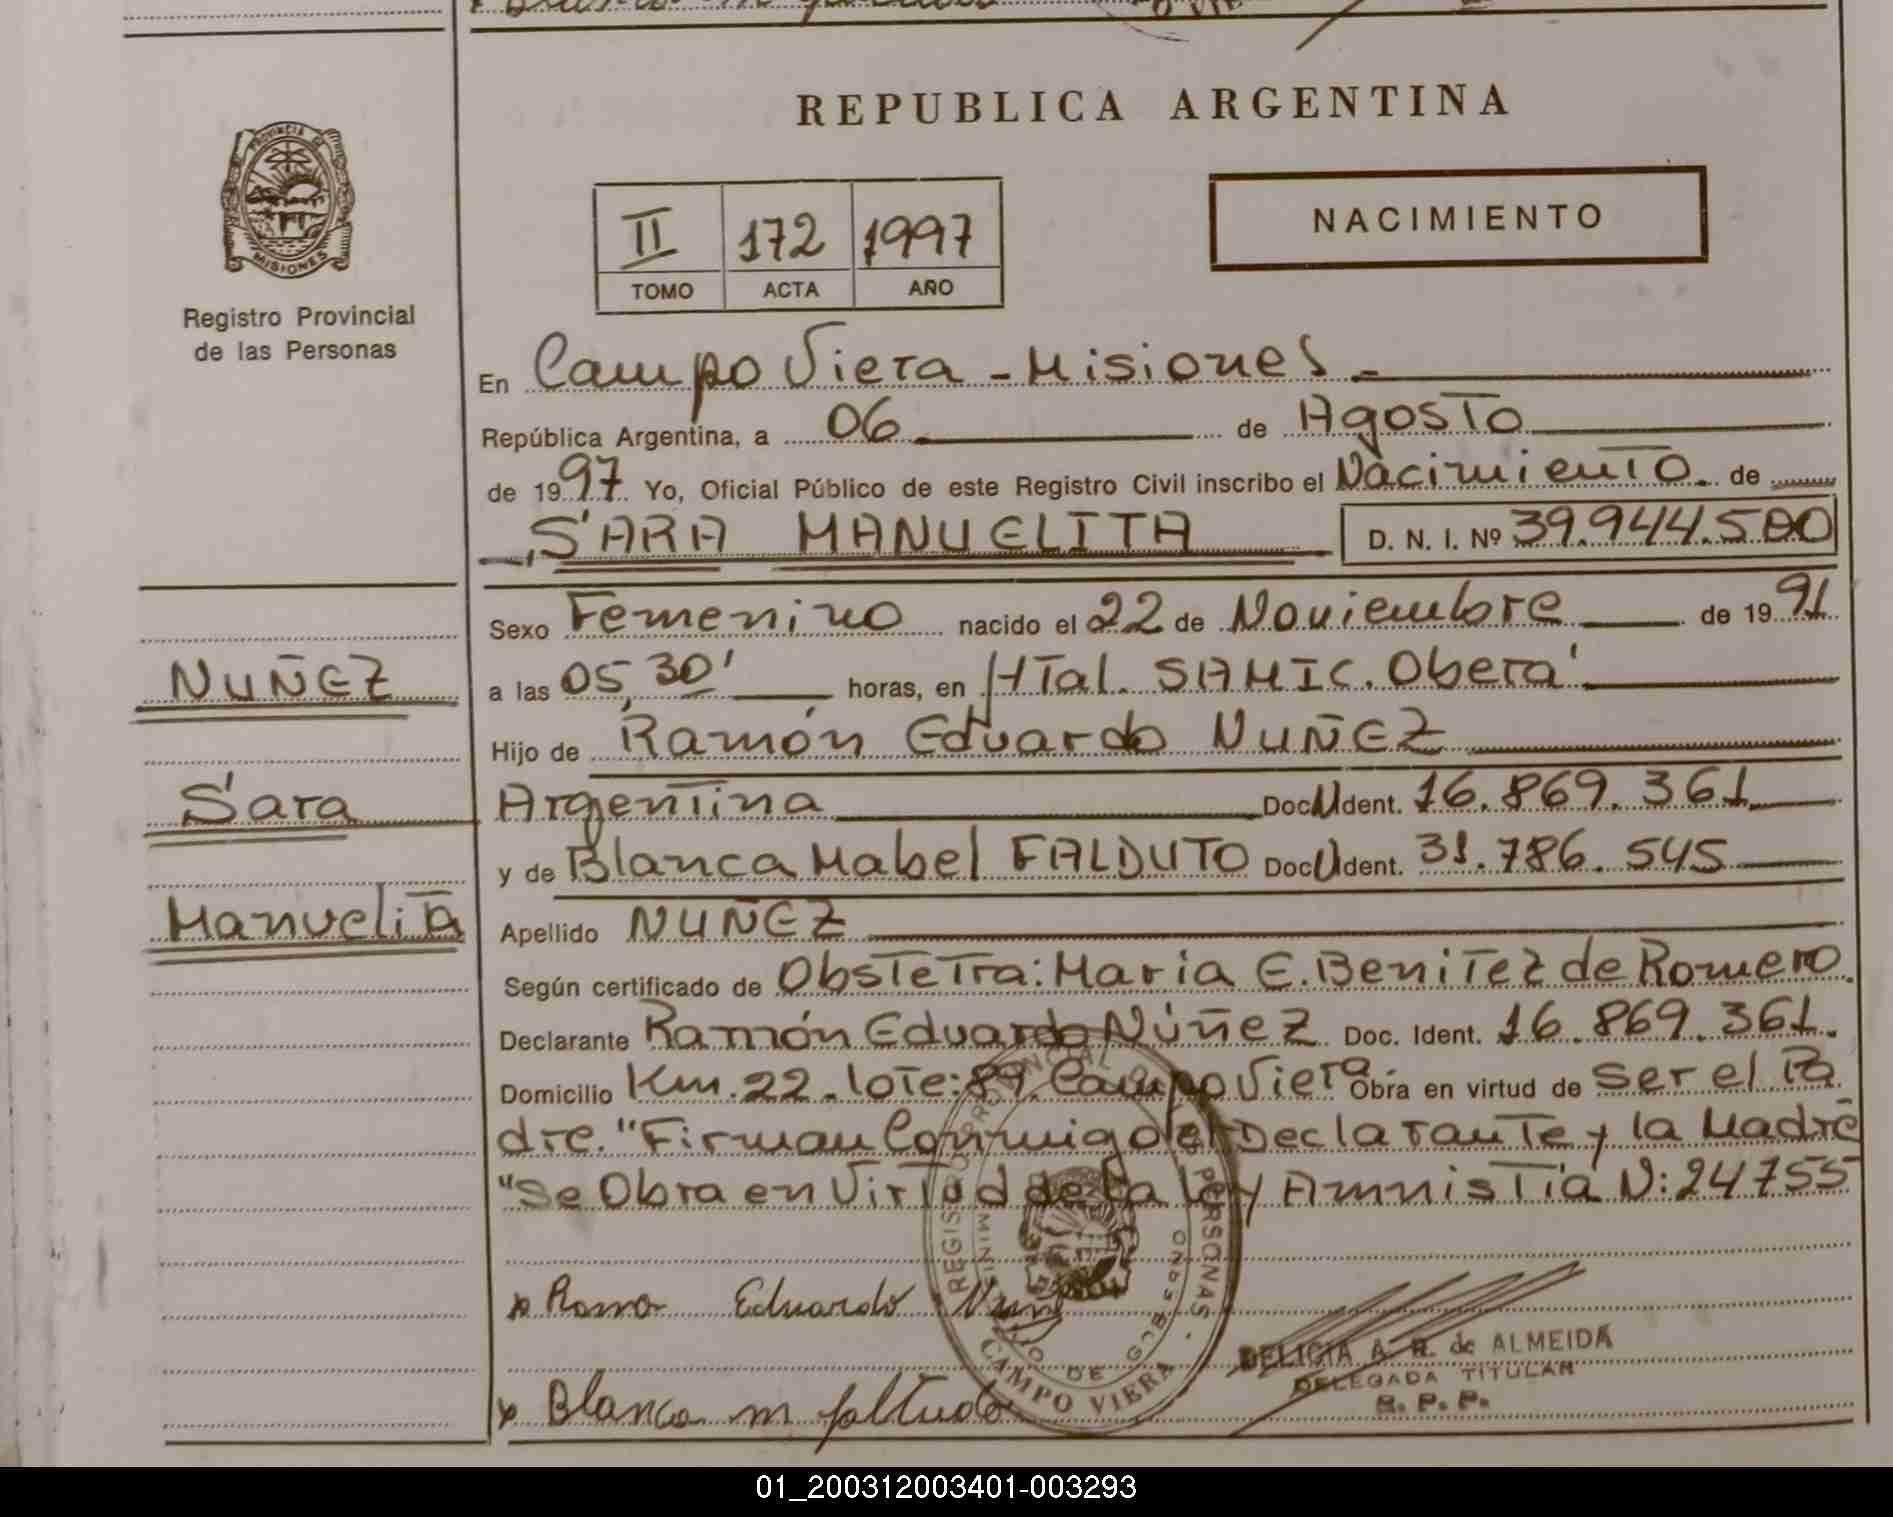 REPUBLICA ARGENTINA
PROVINCIA DE
MISIONES
Registro Provincial
de las Personas
II 172 1997
TOMO ACTA AÑO
NACIMIENTO
En Campo Viera - Misiones -
República Argentina, a 06 de Agosto
de 1997 Yo, Oficial Público de este Registro Civil inscribo el Nacimiento. de
SARA MANUELITA D. N. I. Nº 39.944.500
Sexo Femenino nacido el 22 de Noviembre de 1991
NUÑEZ
a las 05,30' horas, en Htal. SAMIC. Oberá
Hijo de Ramón Eduardo NUÑEZ
Sara
Argentina Doc U Ident. 16.869.361
y de Blanca Mabel FALDUTO Doc U Ident. 31.786.545
Manuelita
Apellido NUÑEZ
Según certificado de Obstetra: Maria E. Benitez de Romero.
Declarante Ramón Eduardo Núñez Doc. Ident. 16.869.361.
Domicilio Km. 22. lote: 89. Campo Viera. Obra en virtud de ser el Pa
dre. "Firman Conmigo el Declarante y la Madre
"Se Obra en Virtud de la ley Amnistia N: 24755
x Eduardo
x Blanca m
REGISTRO PROVINCIAL DE LAS PERSONAS
CAMPO VIERA
DELICIA A. R. de ALMEIDA
DELEGADA TITULAR
R. P. P.
01_200312003401-003293